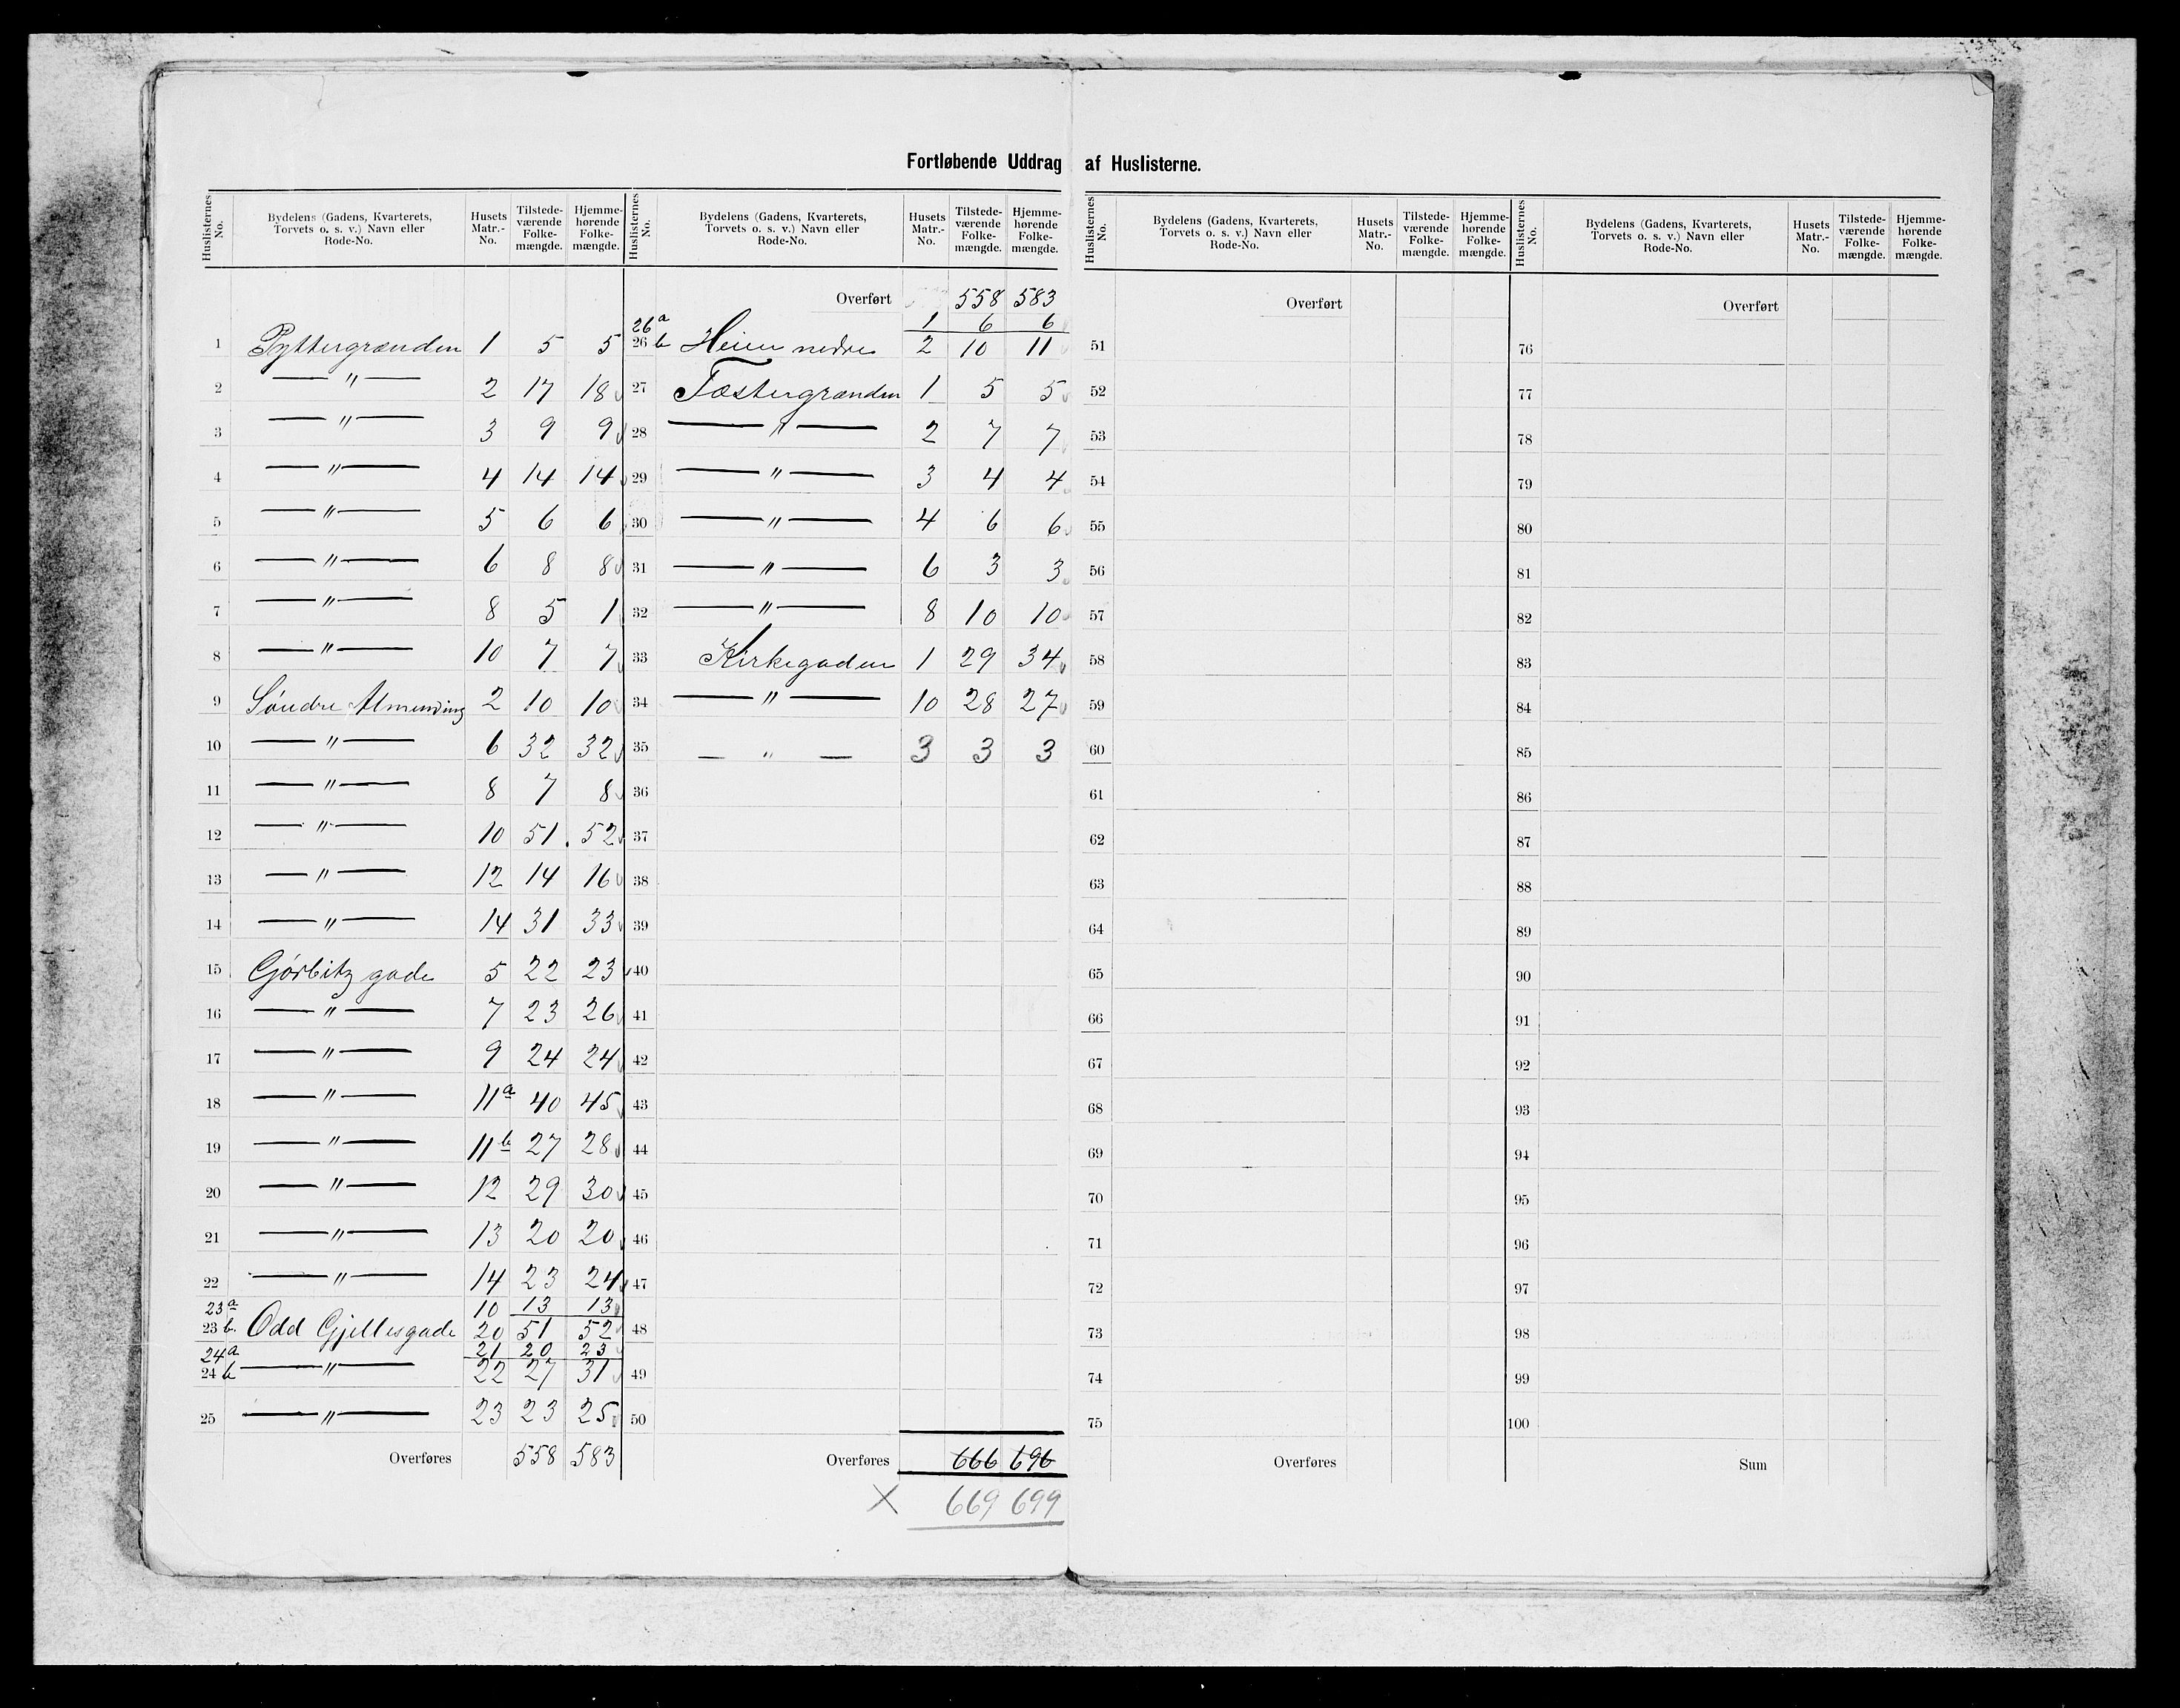 Fortløbende Uddrag af Huslisterne.
Huslisternes No. Bydelens (Gadens, Kvarterets, Torvets o. s. v.) Navn eller Rode-No. Husets Matr.-No. Tilstedeværende Folkemængde. Hjemmehørende Folkemængde.
1 Pyttergrænden 1 5 5
2 — " — 2 17 18
3 — " — 3 9 9
4 — " — 4 14 14
5 — " — 5 6 6
6 — " — 6 8 8
7 — " — 8 5 1
8 — " — 10 7 7
9 Søndre Almending 2 10 10
10 — " — 6 32 32
11 — " — 8 7 8
12 — " — 10 51 52
13 — " — 12 14 16
14 — " — 14 31 33
15 Gjørbitz gade 5 22 23
16 — " — 7 23 26
17 — " — 9 24 24
18 — " — 11a 40 45
19 — " — 11b 27 28
20 — " — 12 29 30
21 — " — 13 20 20
22 — " — 14 23 24
23a 10 13 13
23 b. Odd Gjellesgade 20 51 52
24a 21 20 23
24 b — " — 22 27 31
25 — " — 23 23 25
Overføres 558 583
Huslisternes No. Bydelens (Gadens, Kvarterets, Torvets o. s. v.) Navn eller Rode-No. Husets Matr.-No. Tilstedeværende Folkemængde. Hjemmehørende Folkemængde.
Overført 558 583
26a 1 6 6
26 b Heien nedre 2 10 11
27 Tostergrænden 1 5 5
28 — " — 2 7 7
29 — " — 3 4 4
30 — " — 4 6 6
31 — " — 6 3 3
32 — " — 8 10 10
33 Kirkegaden 1 29 34
34 — " — 10 28 27
35 — " — 3 3 3
36
37
38
39
40
41
42
43
44
45
46
47
48
49
50
Overføres 666 696
X 669 699
Huslisternes No. Bydelens (Gadens, Kvarterets, Torvets o. s. v.) Navn eller Rode-No. Husets Matr.-No. Tilstedeværende Folkemængde. Hjemmehørende Folkemængde.
Overført
51
52
53
54
55
56
57
58
59
60
61
62
63
64
65
66
67
68
69
70
71
72
73
74
75
Overføres
Huslisternes No. Bydelens (Gadens, Kvarterets, Torvets o. s. v.) Navn eller Rode-No. Husets Matr.-No. Tilstedeværende Folkemængde. Hjemmehørende Folkemængde.
Overført
76
77
78
79
80
81
82
83
84
85
86
87
88
89
90
91
92
93
94
95
96
97
98
99
100
Sum